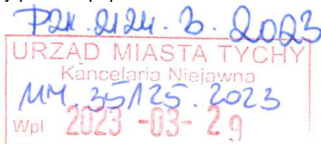 PZK.2124.3.2023
URZĄD MIASTA TYCHY
Kancelaria Niejawna
35125.2023
Wpł 2023 -03- 29